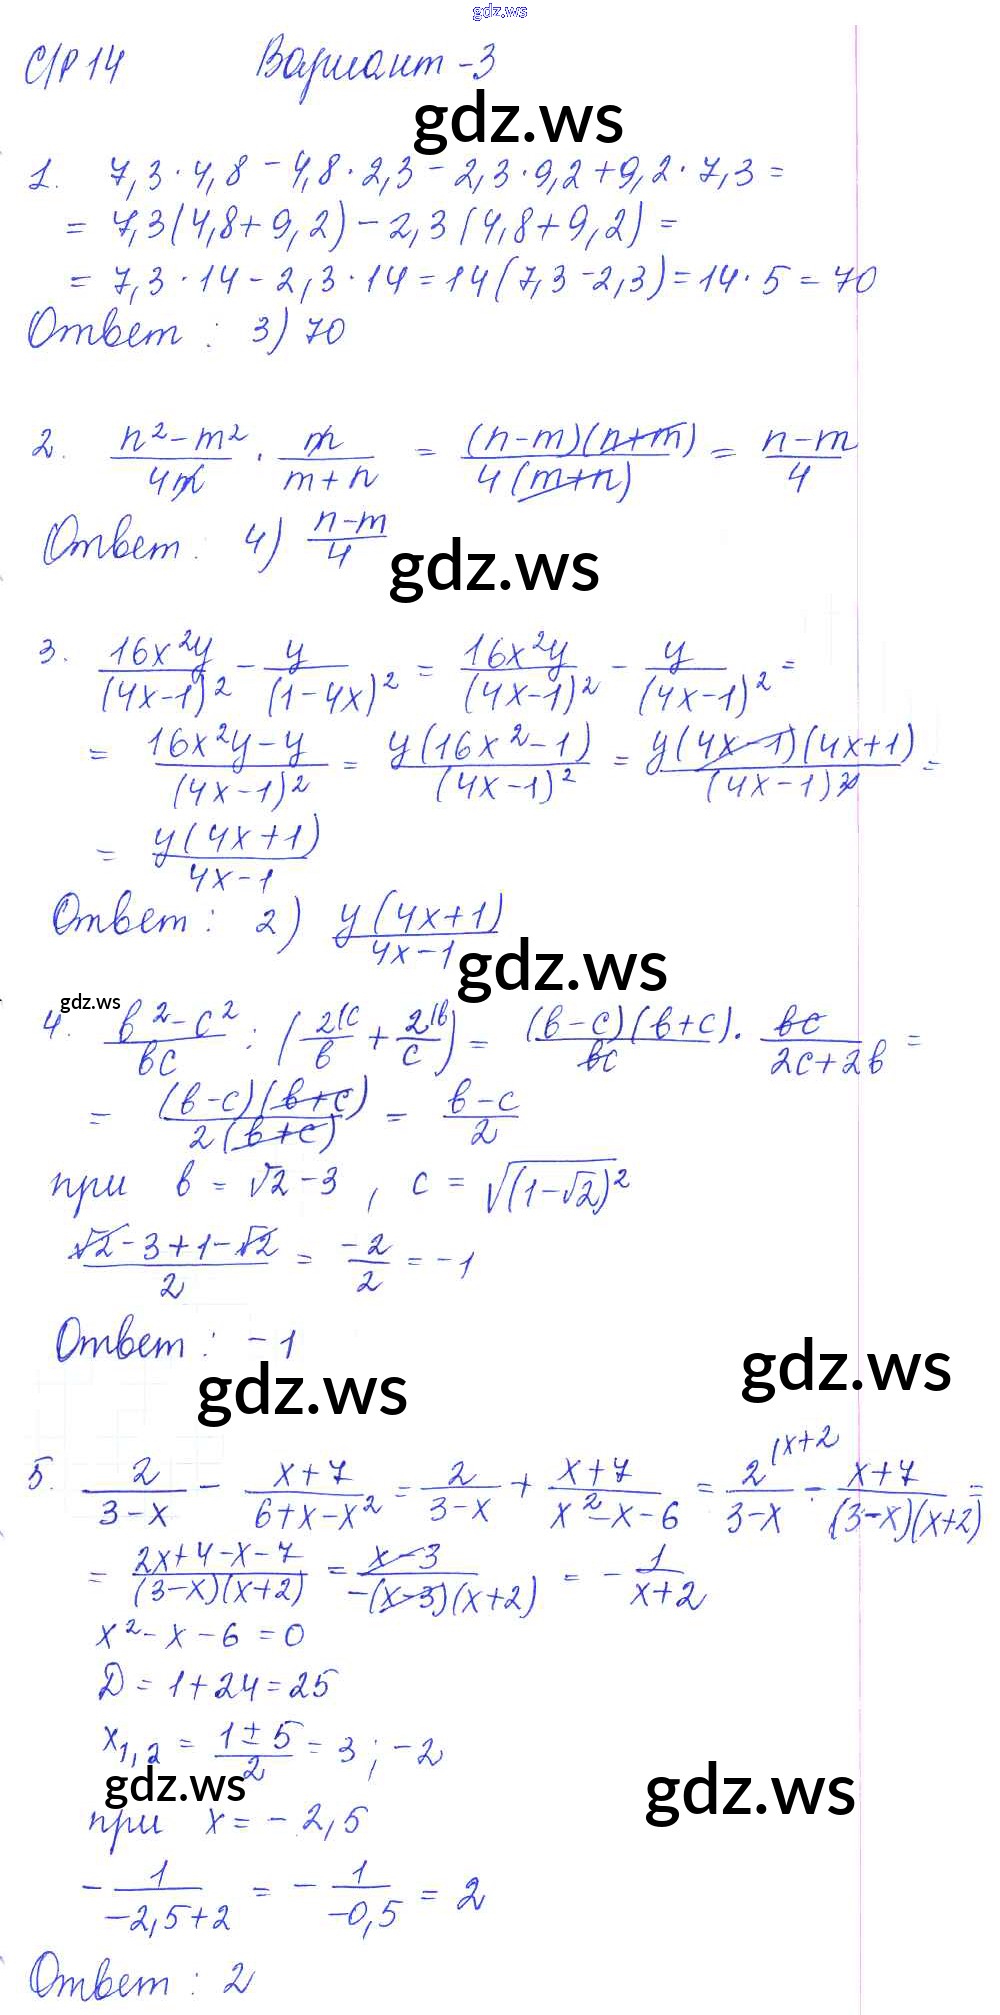 gdz.ws
С/Р 14 Вариант -3
gdz.ws
1. 7,3·4,8 - 4,8·2,3 - 2,3·9,2 + 9,2·7,3 =
= 7,3(4,8+9,2) - 2,3(4,8+9,2) =
= 7,3·14 - 2,3·14 = 14(7,3-2,3) = 14·5 = 70
Ответ: 3) 70
2. (n²-m²)/(4m) · m/(m+n) = ((n-m)(n+m))/(4(m+n)) = (n-m)/4
Ответ: 4) (n-m)/4
gdz.ws
3. 16x²y/(4x-1)² - y/(1-4x)² = 16x²y/(4x-1)² - y/(4x-1)² =
= (16x²y-y)/(4x-1)² = y(16x²-1)/(4x-1)² = y(4x-1)(4x+1)/(4x-1)² =
= y(4x+1)/(4x-1)
Ответ: 2) y(4x+1)/(4x-1)
gdz.ws
gdz.ws
4. (в²-с²)/(вс) : (2|с/в + 2|в/с) = (в-с)(в+с)/(вс) · вс/(2с+2в) =
= (в-с)(в+с)/(2(в+с)) = (в-с)/2
при в = √2-3, с = √(1-√2)²
(√2-3+1-√2)/2 = -2/2 = -1
Ответ: -1
gdz.ws
gdz.ws
5. 2/(3-x) - (x+7)/(6+x-x²) = 2/(3-x) + (x+7)/(x²-x-6) = 2|x+2/(3-x) - (x+7)/((3-x)(x+2)) =
= (2x+4-x-7)/((3-x)(x+2)) = (x-3)/(-(x-3)(x+2)) = -1/(x+2)
x²-x-6=0
D=1+24=25
x1,2 = (1±5)/2 = 3; -2
gdz.ws
gdz.ws
при x = -2,5
-1/(-2,5+2) = -1/(-0,5) = 2
Ответ: 2